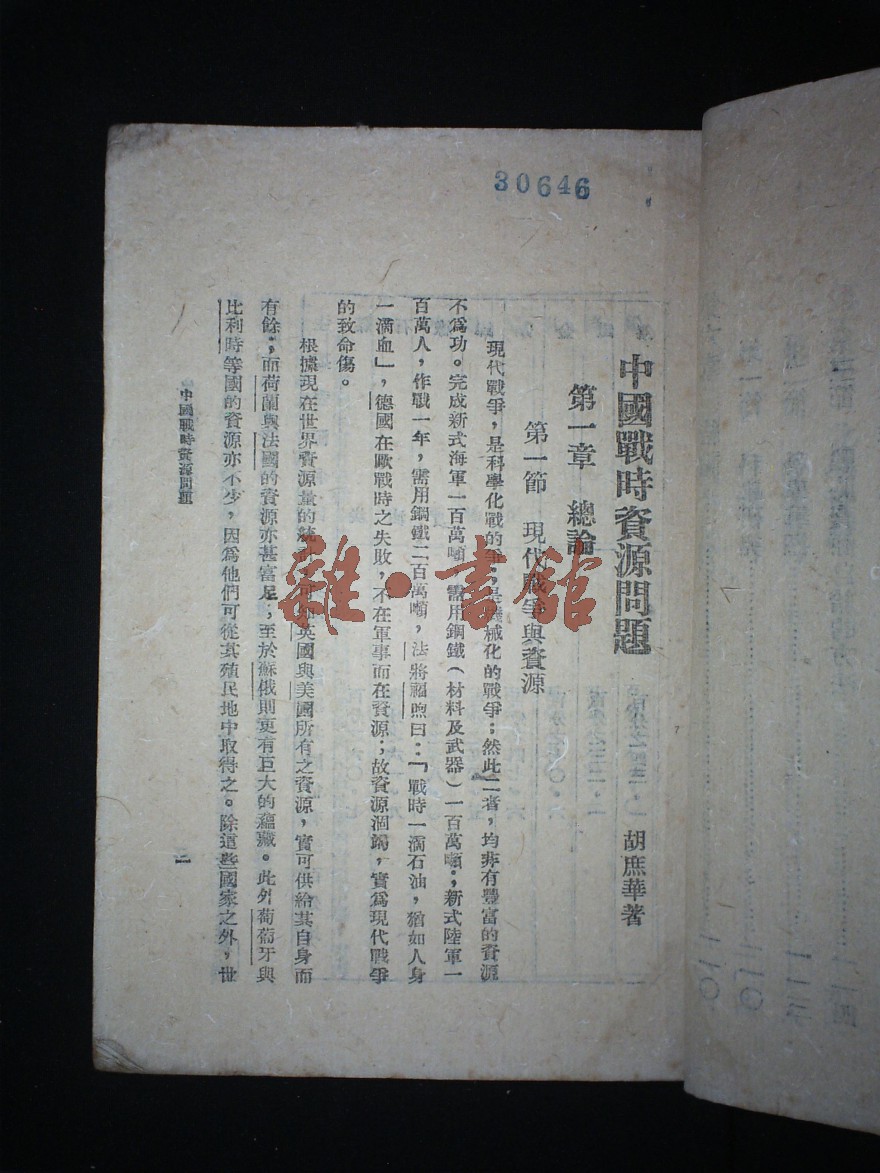 30646
中國戰時資源問題
胡庶華著
第一章 總論
第一節 現代戰爭與資源
現代戰爭，是科學化戰的爭，是機械化的戰爭；然此二者，均非有豐富的資源
不爲功。完成新式海軍一百萬噸，需用鋼鐵（材料及武器）一百萬噸，新式陸軍一
百萬人，作戰一年，需用鋼鐵二百萬噸，法將福煦曰：「戰時一滴石油，猶如人身
一滴血」，德國在歐戰時之失敗，不在軍事而在資源；故資源涸竭，實爲現代戰爭
的致命傷。
根據現在世界資源量的統計，可知英國與美國所有之資源，實可供給其自身而
有餘；而荷蘭與法國的資源亦甚富足，至於蘇俄則更有巨大的蘊藏。此外葡萄牙與
比利時等國的資源亦不少，因爲他們可從其殖民地中取得之。除這些國家之外，世
中國戰時資源問題
一
雜·書館